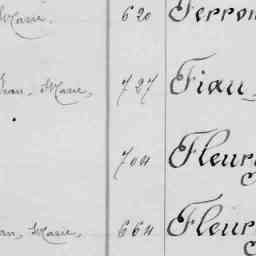 Marie. 620 Ferron
Jean-Marie, 727 Fiau
704 Fleur
Jean, Marie, 664 Fleur